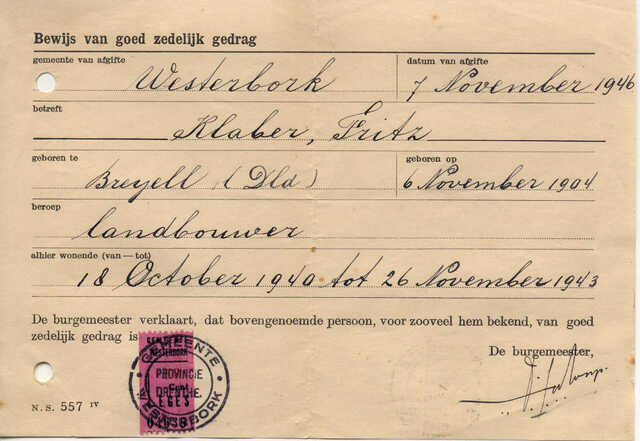 Bewijs van goed zedelijk gedrag
gemeente van afgifte
datum van afgifte
Westerbork
7 November 1946
betreft
Klaber, Fritz
geboren te
geboren op
Breyell (Dld)
6 November 1904
beroep
landbouwer
alhier wonende (van—tot)
18 October 1940 tot 26 November 1943
De burgemeester verklaart, dat bovengenoemde persoon, voor zooveel hem bekend, van goed
zedelijk gedrag is
De burgemeester,
GEMEENTE
WESTERBORK
PROVINCIE
DRENTHE
LEGES
N.S. 557 IV